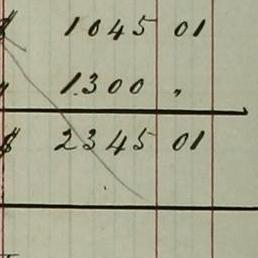 $ 1045 01
" 1300 "
$ 2345 01